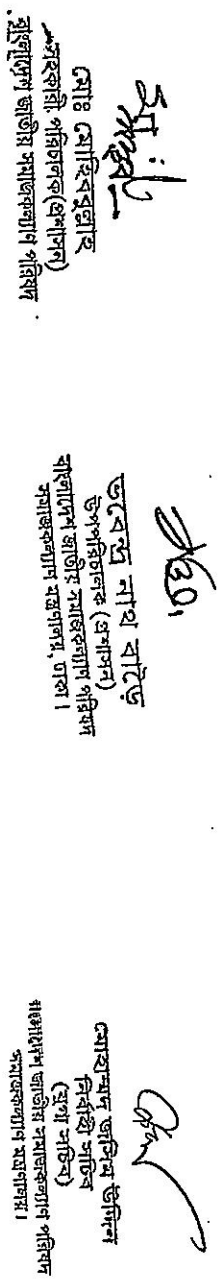 মোঃ মোহিবুল্লাহ
সহকারী পরিচালক (প্রশাসন)
বাংলাদেশ জাতীয় সমাজকল্যাণ পরিষদ
ভবেন্দ্র নাথ বাড়ৈ
উপপরিচালক (প্রশাসন)
বাংলাদেশ জাতীয় সমাজকল্যাণ পরিষদ
সমাজকল্যাণ মন্ত্রণালয়, ঢাকা।
মোহাম্মদ জসিম উদ্দিন
নির্বাহী সচিব
(যুগ্ম সচিব)
বাংলাদেশ জাতীয় সমাজকল্যাণ পরিষদ
সমাজকল্যাণ মন্ত্রণালয়।